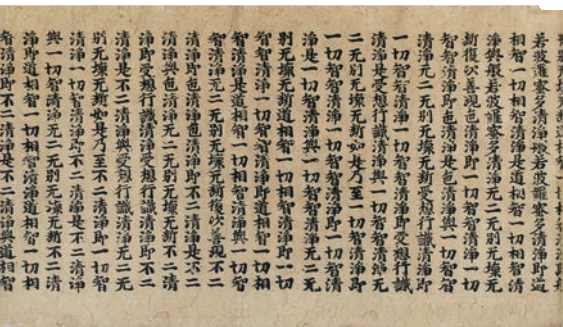 若波羅蜜多清淨般若波羅蜜多清淨即道
相智一切相智清淨是道相智一切相智清
淨與般若波羅蜜多清淨无二无別无壞无
斷復次善現色清淨即一切智智清淨一切
智智清淨即色清淨是色清淨與一切智智
清淨无二无別无壞无斷受想行識清淨即
一切智智清淨一切智智清淨即受想行識
清淨是受想行識清淨與一切智智清淨无
二无別无壞无斷如是乃至一切智清淨即
一切智智清淨一切智智清淨即一切智清
淨是一切智清淨與一切智智清淨无二无
別无壞无斷道相智一切相智清淨即一切
智智清淨一切智智清淨即道相智一切相
智清淨是道相智一切相智清淨與一切智
智清淨无二无別无壞无斷復次善現不二
清淨即色清淨色清淨即不二清淨是不二
清淨與色清淨无二无別无壞无斷不二清
淨即受想行識清淨受想行識清淨即不二
清淨是不二清淨與受想行識清淨无二无
別无壞无斷如是乃至不二清淨即一切智
清淨一切智清淨即不二清淨是不二清淨
與一切智清淨无二无別无壞无斷不二清
淨即道相智一切相智清淨道相智一切相
智清淨即不二清淨是不二清淨與道相智